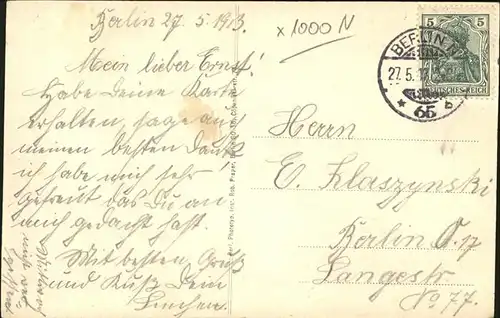 Berlin 27.5.1913
x 1000 N
Mein lieber Ernst!
Habe Deine Karte
erhalten, sage auch
meinen besten Dank
ich habe mich sehr
gefreut das Du an
mich gedacht hast.
Mit besten Gruß
und Kuß Dein
Linchen.
5 5
DEUTSCHES REICH
BERLIN N
27.5.1
* 65 b
Herrn
E. Klaszynski
Berlin O. 17
Langestr
No 77.